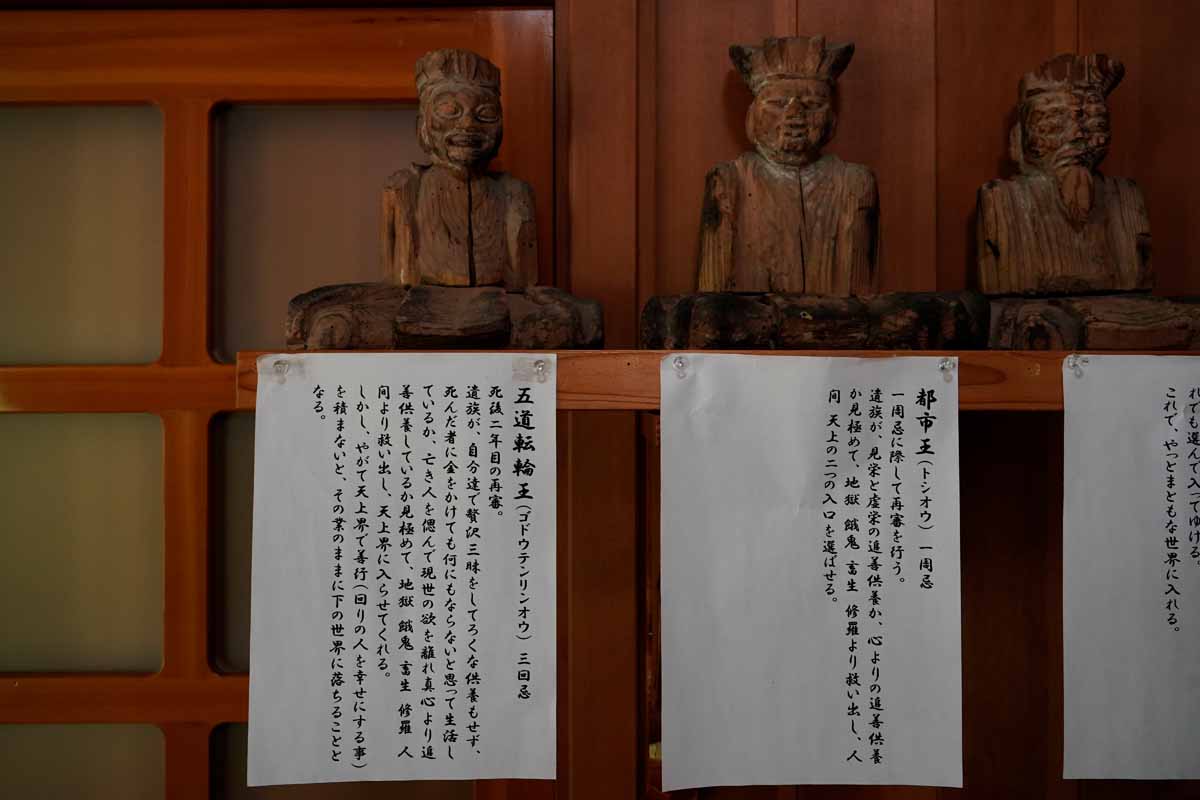 れでも選んで入ってゆける。
これで、やっとまともな世界に入れる。
都市王(トシオウ) 一周忌
一周忌に際して再審を行う。
遺族が、見栄と虚栄の追善供養か、心よりの追善供養
か見極めて、地獄 餓鬼 畜生 修羅より救い出し、人
間 天上の二つの入口を選ばせる。
五道転輪王(ゴドウテンリンオウ) 三回忌
死後二年目の再審。
遺族が、自分達で贅沢三昧をしてろくな供養もせず、
死んだ者に金をかけても何にもならないと思って生活し
ているか、亡き人を偲んで現世の欲を離れ真心より追
善供養しているか見極めて、地獄 餓鬼 畜生 修羅 人
間より救い出し、天上界に入らせてくれる。
しかし、やがて天上界で善行(回りの人を幸せにする事)
を積まないと、その業のままに下の世界に落ちることと
なる。